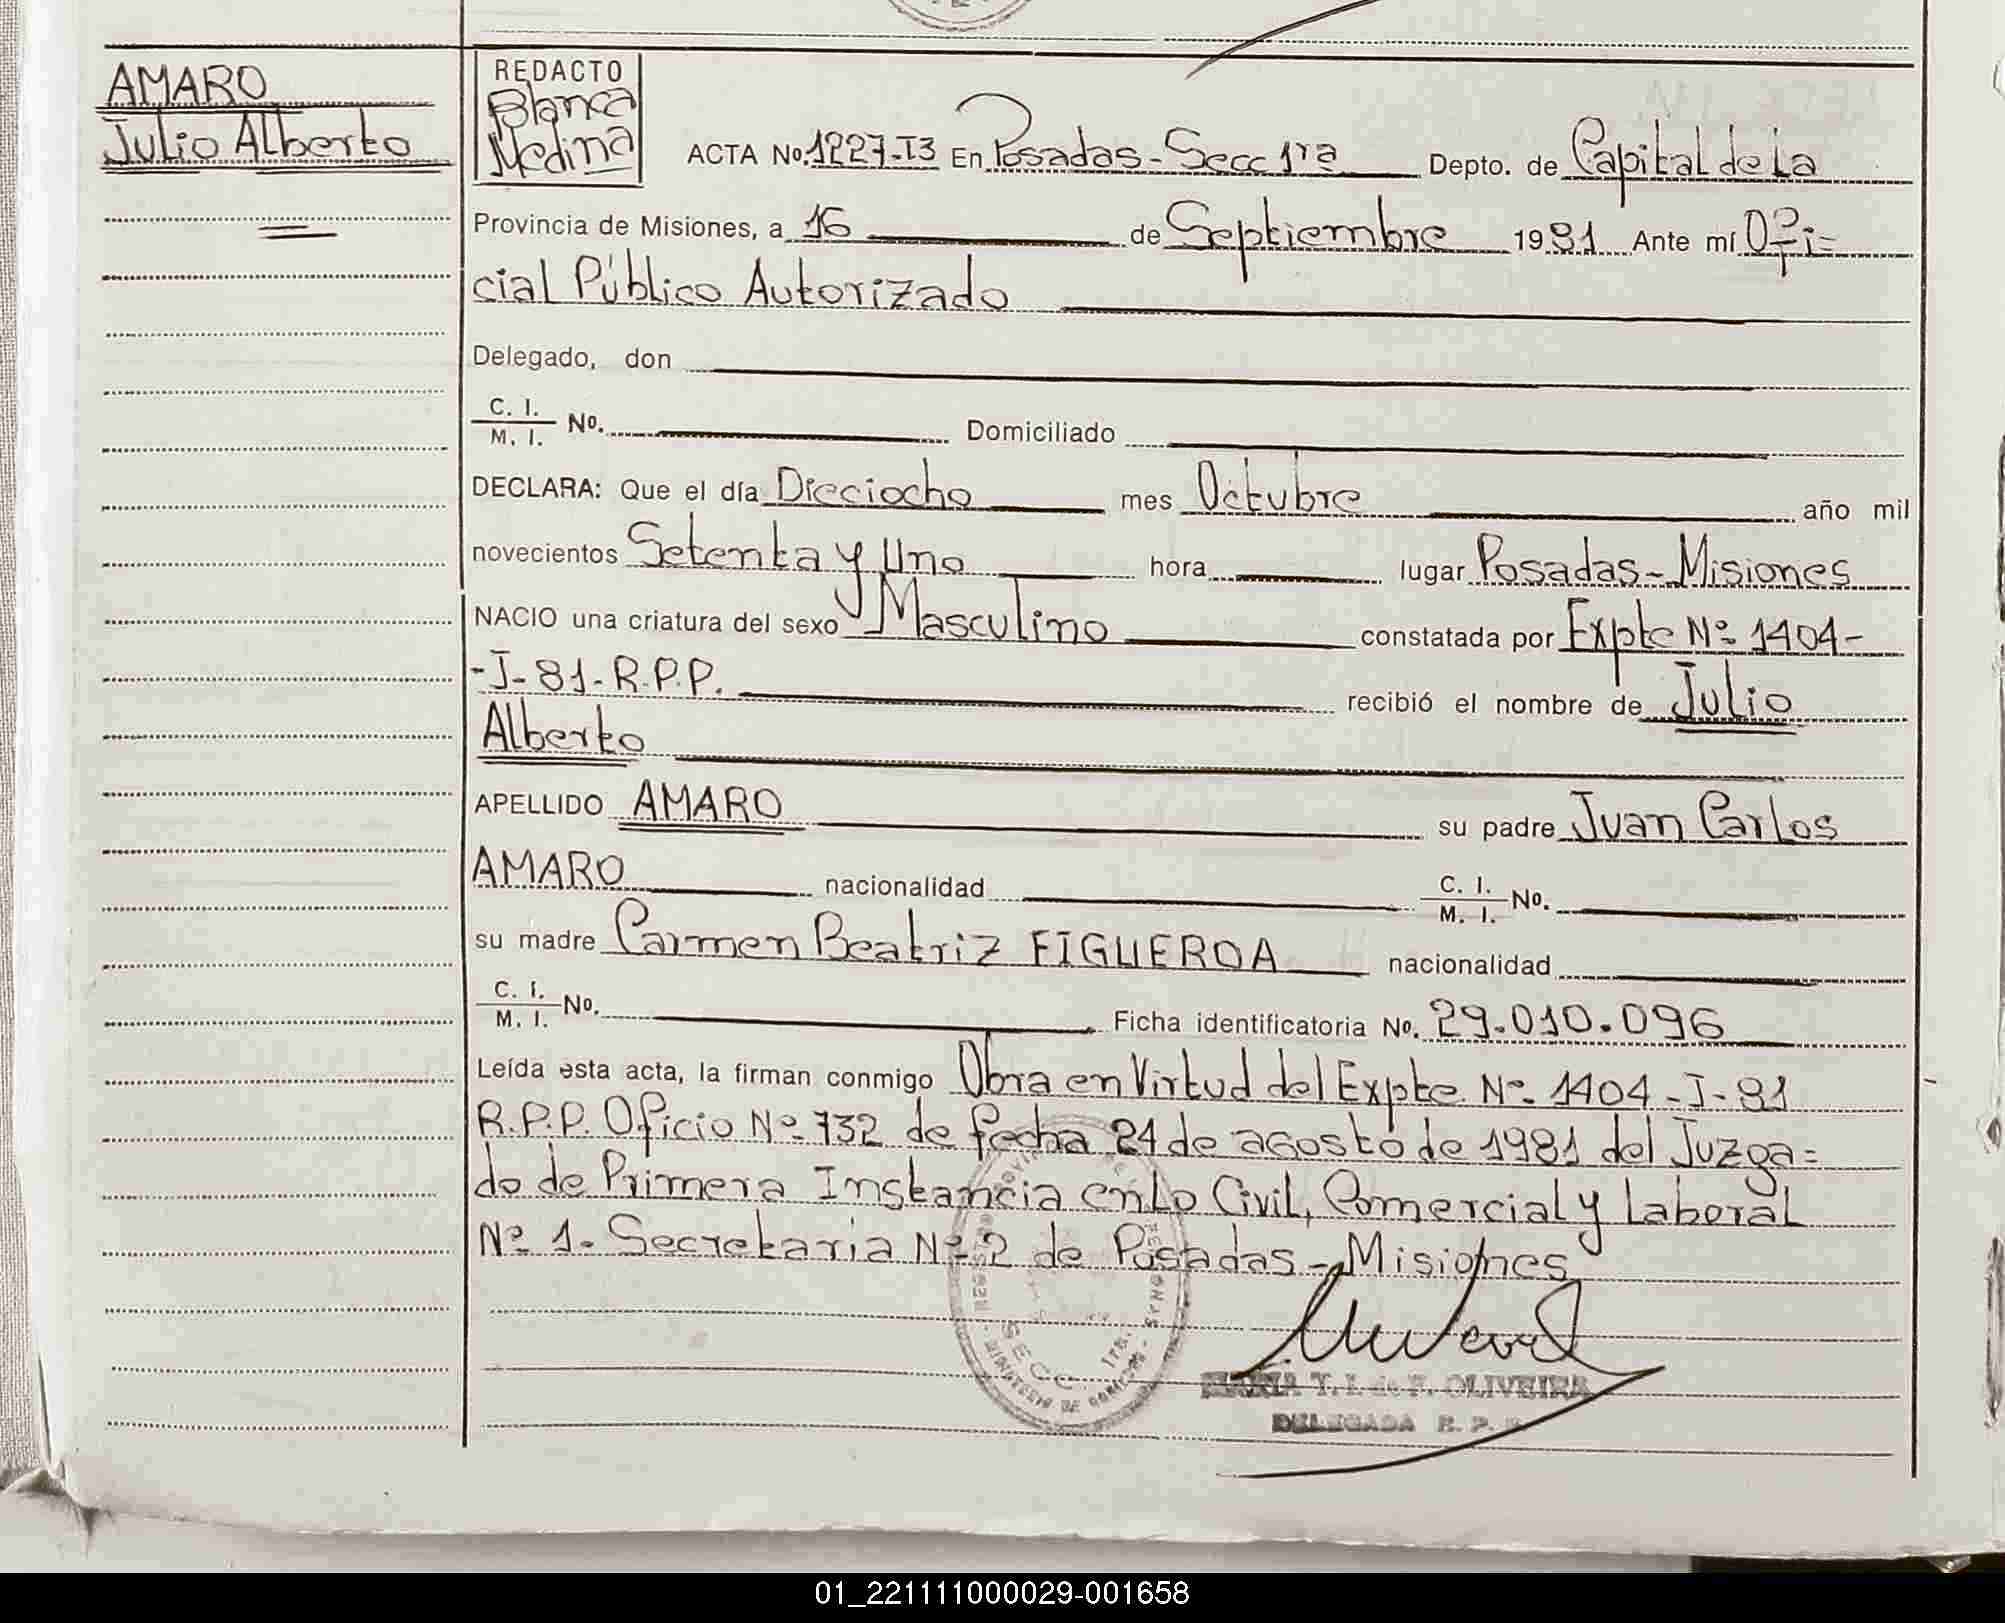 AMARO
Julio Alberto
REDACTO
Blanca
Medina
ACTA No. 1227-T3 En Posadas - Secc 1ra Depto. de Capital de La
Provincia de Misiones, a 16 de Septiembre 1981 Ante mí Ofi=
cial Público Autorizado
Delegado, don
C. I.
M. I. No. Domiciliado
DECLARA: Que el día Dieciocho mes Octubre año mil
novecientos Setenta y Uno hora lugar Posadas - Misiones
NACIO una criatura del sexo Masculino constatada por Expte Nº 1404-
-J-81-R.P.P. recibió el nombre de Julio
Alberto
APELLIDO AMARO su padre Juan Carlos
AMARO nacionalidad C. I.
M. I. No.
su madre Carmen Beatriz FIGUEROA nacionalidad
C. I.
M. I. No. Ficha identificatoria No. 29.010.096
Leída esta acta, la firman conmigo Obra en Virtud del Expte Nº 1404-J-81
R.P.P. Oficio Nº 732 de fecha 24 de agosto de 1981 del Juzga=
do de Primera Instancia en Lo Civil, Comercial y Laboral
Nº 1. Secretaria Nº 2 de Posadas - Misiones
SECC. 1ra.
MARIA T. I. de F. OLIVEIRA
DELEGADA R. P. P.
01_221111000029-001658